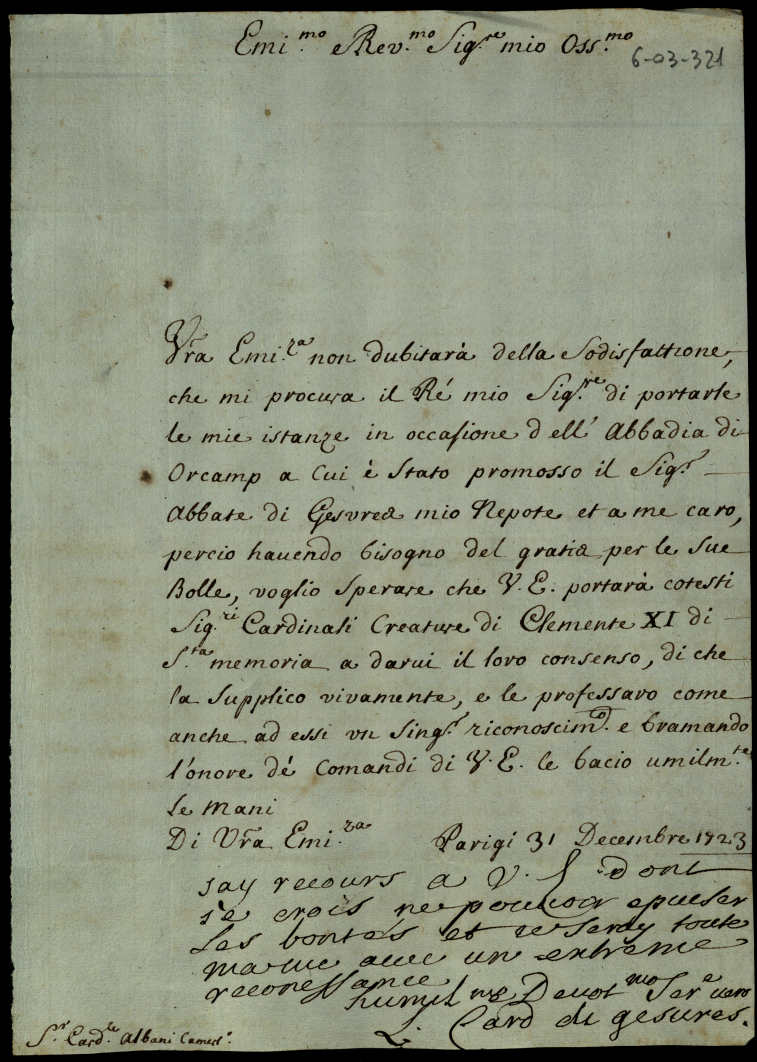 Emi.mo e Rev.mo Sig.re mio Oss.mo
6-03-321
Vra Emi.za non dubitarà della Sodisfattione,
che mi procura il Ré mio Sig.re di portarle
le mie istanze in occasione dell' Abbadia di
Orcamp a Cui è Stato promosso il Sig.r
Abbate di Gesvres mio Nepote et a me caro,
percio havendo bisogno del gratis per le Sue
Bolle, voglio Sperare che V. E. portarà cotesti
Sig.ri Cardinali Creature di Clemente XI di
S.ta memoria a darvi il loro consenso, di che
la Supplico vivamente, e le professaro come
anche ad essi un Sing.r riconoscim.o e bramando
l'onore dé Comandi di V. E. le bacio umilm.te
le mani
Di Vra Emi.za Parigi 31 Decembre 1723
jay recours a V. E. dont
je crois ne pouvoir epuiser
les bontés et je seray toute
ma vie avec un extreme
reconessance
humil.mo Devot.mo Ser.e vero
L. Card di gesvres.
S.r Card.le Albani Camerl.o